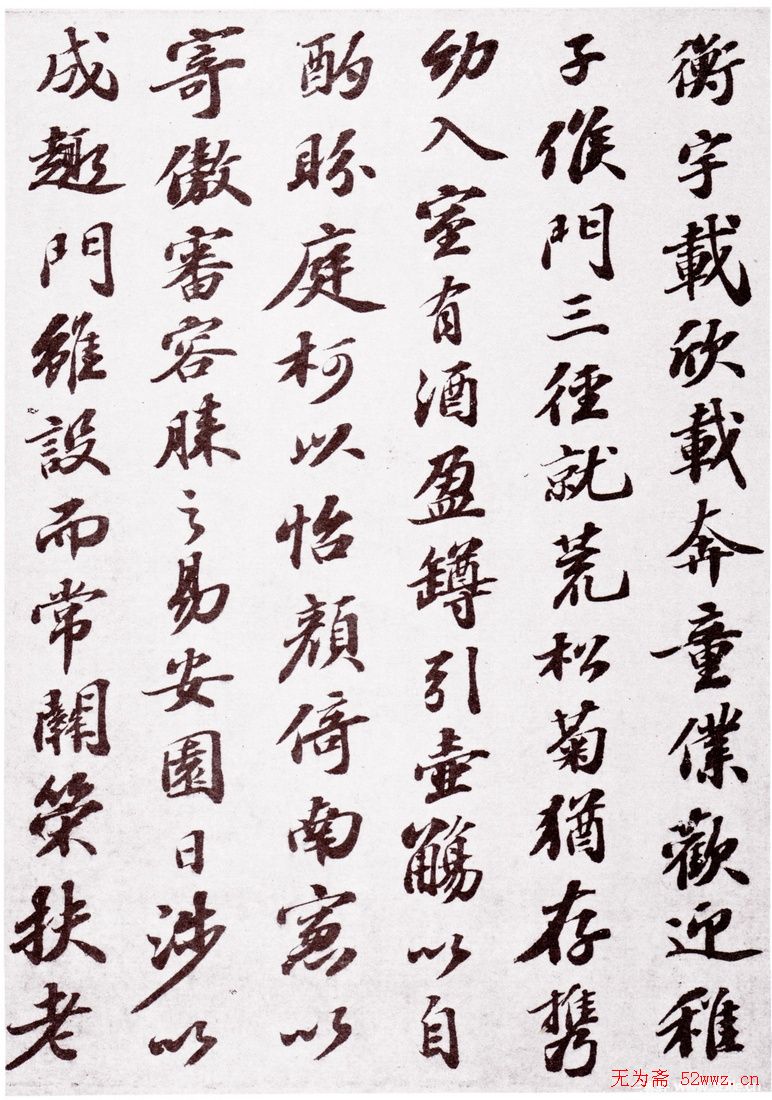 衡宇載欣載奔童僕歡迎稚
子候門三徑就荒松菊猶存攜
幼入室有酒盈罇引壺觴以自
酌眄庭柯以怡顏倚南窓以
寄傲審容膝之易安園日涉以
成趣門雖設而常關策扶老
无为斋 52wwz.cn